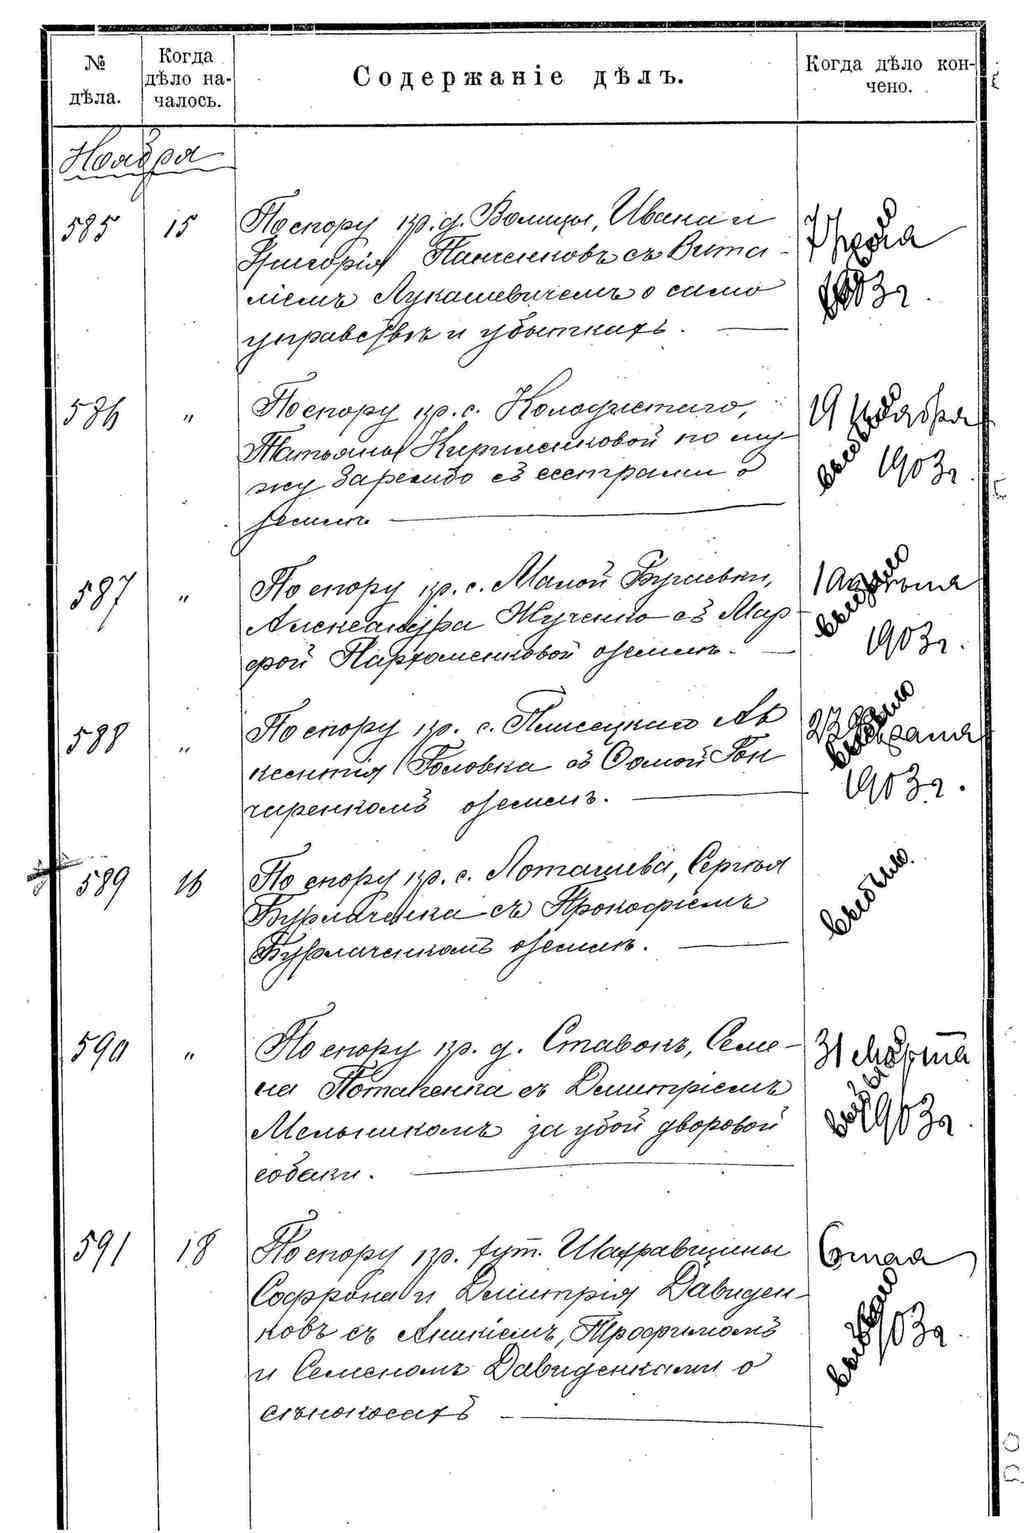 № дѣла.
Когда дѣло на-
чалось.
Содержаніе дѣлъ.
Когда дѣло кон-
чено.
Ноября
585 15 По спору кр. д. Волицы, Ивана и
Григорія Панченковъ съ Вита-
ліемъ Лукашевичемъ о само
управствѣ и убыткахъ.
7 Іюля
1903 г.
выбыло
586 " По спору кр. с. Колодистаго,
Татьяны Кириленковой по му-
жу Зарембо съ сестрами о
землѣ.
19 Ноября
1903 г.
выбыло
587 " По спору кр. с. Малой Бугаевки,
Александра Жученко съ Мар-
фой Пархоменковой о землѣ.
1
1903 г.
выбыло
588 " По спору кр. с. Плисецкаго Ав
ксентія Головка съ Фомой Гон
чаренкомъ о землѣ.
февраля
1903 г.
выбыло
589 16 По спору кр. с. Лоташева, Сергѣя
Бурлаченка съ Прокофіемъ
Бурлаченкомъ о землѣ.
выбыло.
590 " По спору кр. д. Ставокъ, Семе-
на Потапенка съ Дмитріемъ
Мельникомъ за убой дворовой
собаки.
31 Марта
1903 г.
выбыло
591 18 По спору кр. хут. Шахравщины
Софрона и Дмитрія Давиден-
ковъ съ Аникіемъ, Трофимомъ
и Семеномъ Давиденками о
сѣнокосахъ
6 мая
903 г.
выбыло